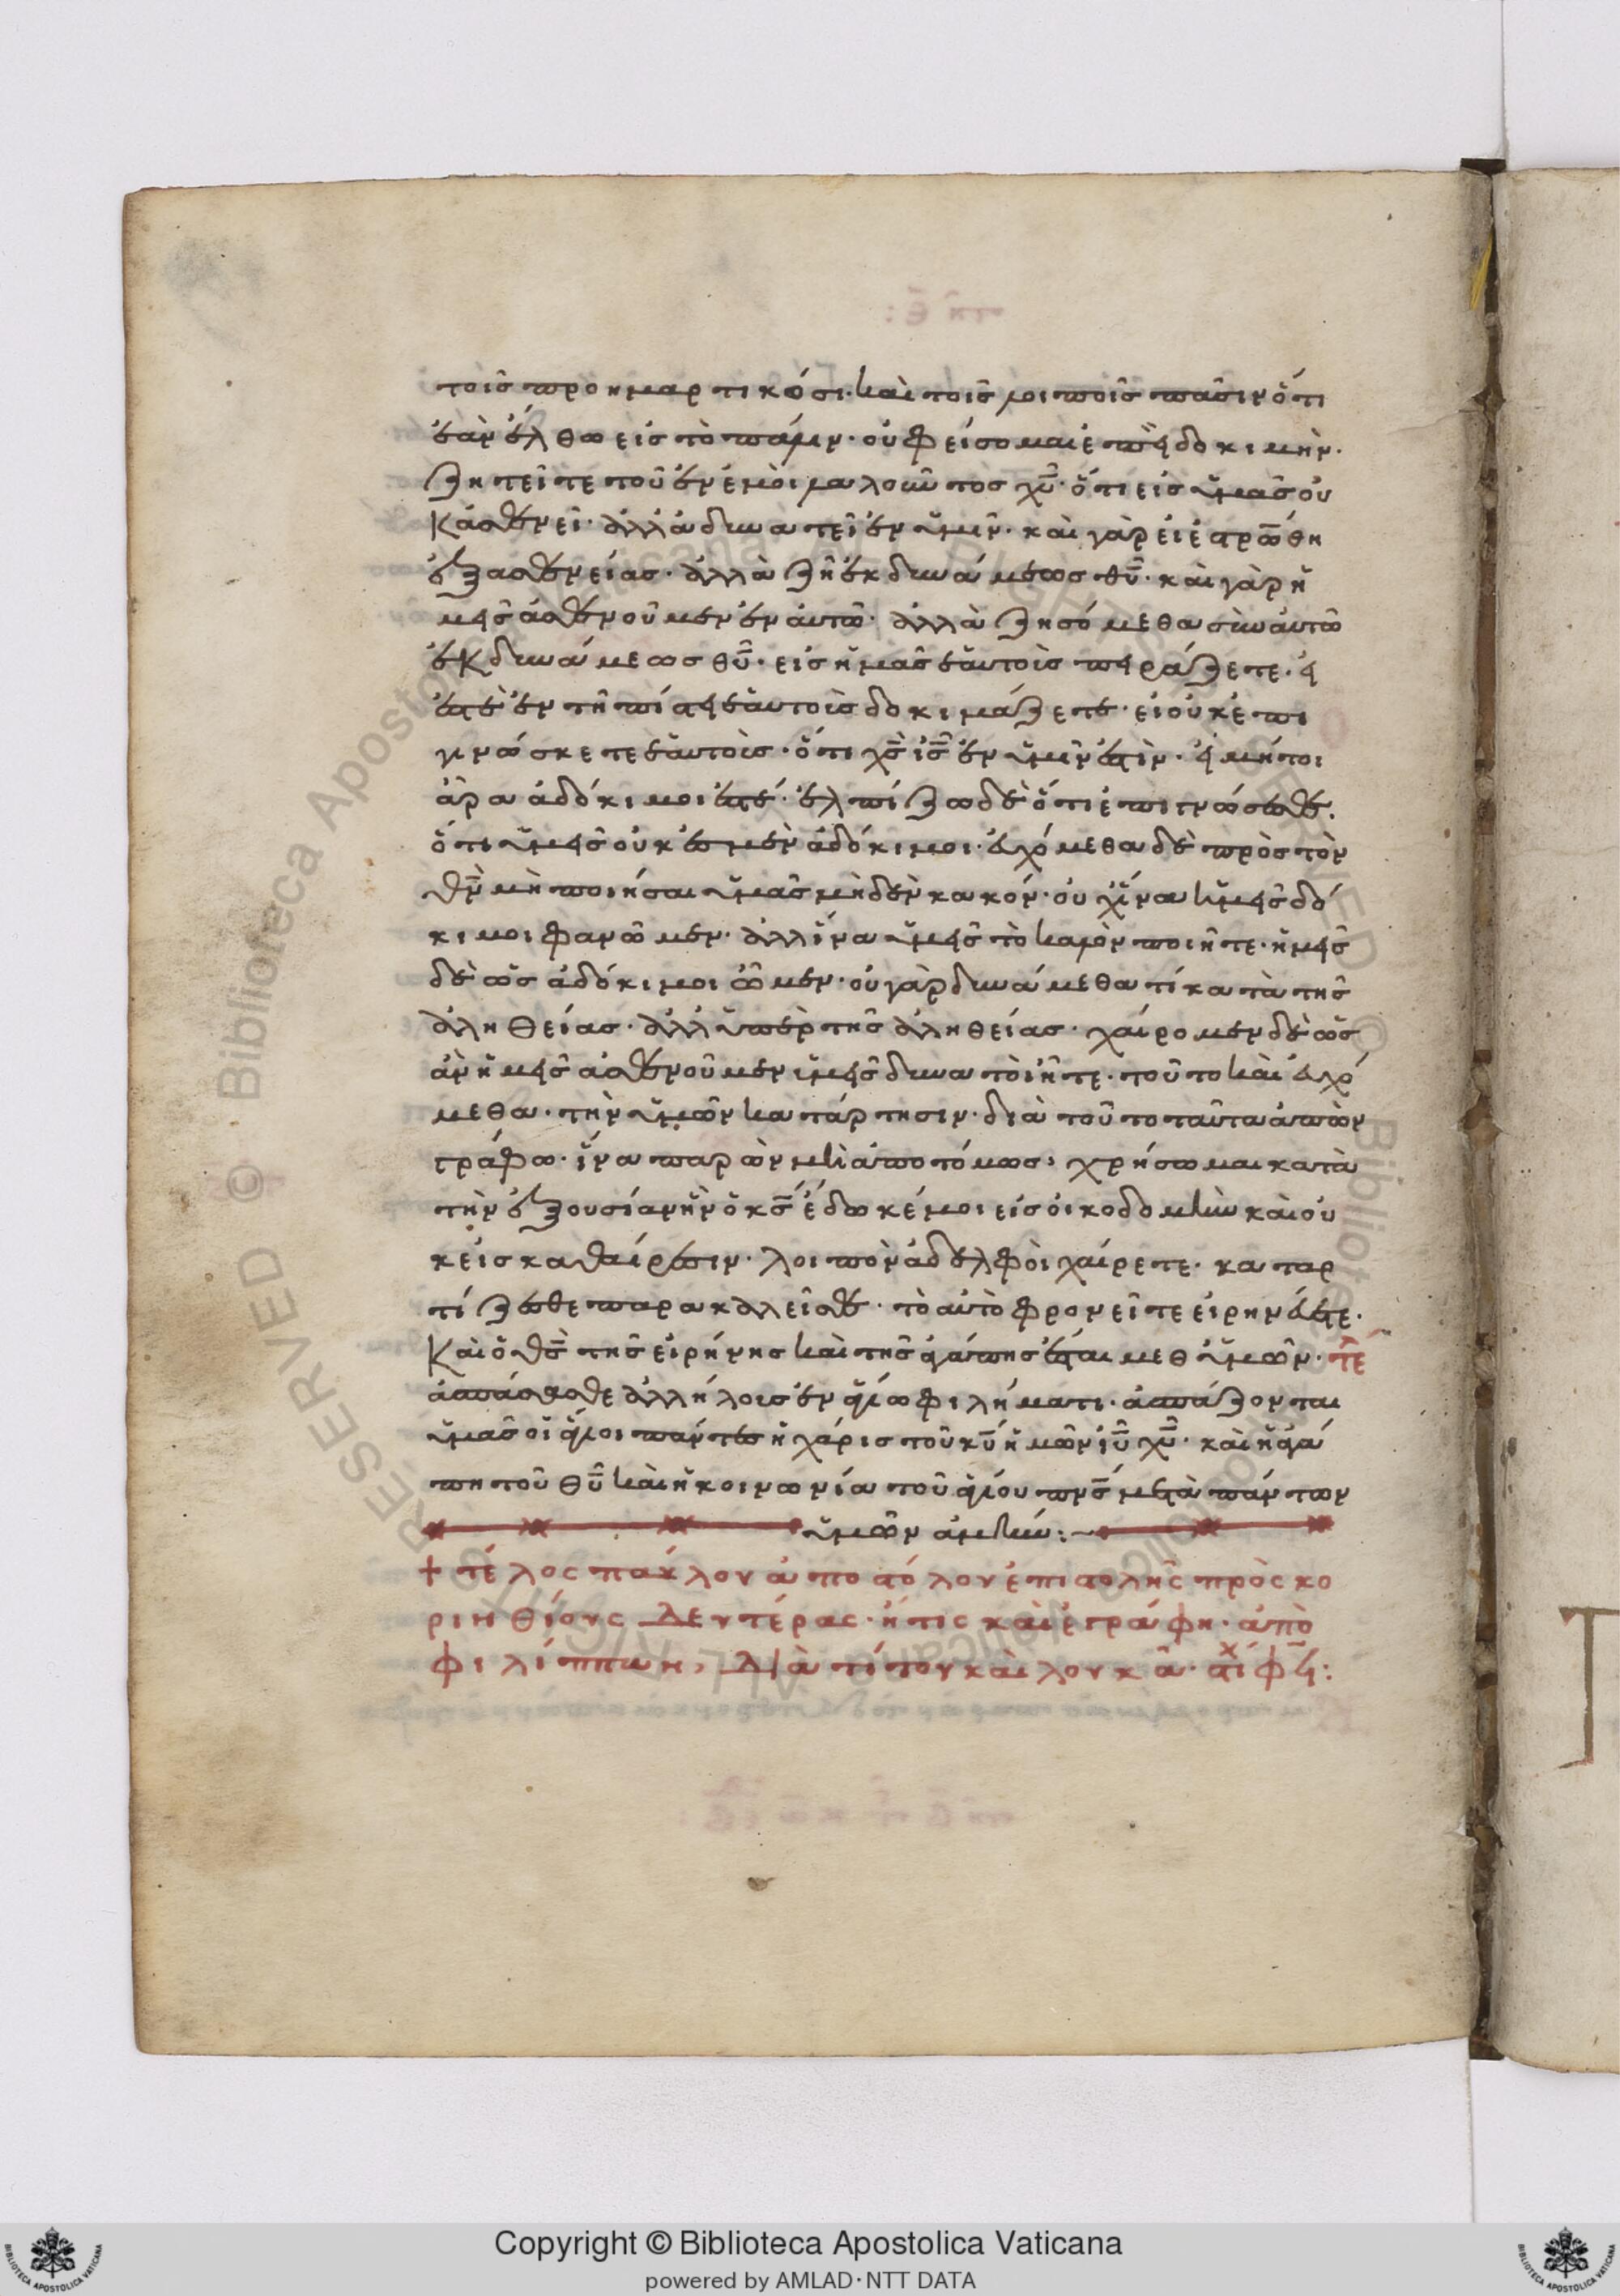 τοῖς προημαρτικόσι· καὶ τοῖς λοιποῖς πᾶσιν ὅτι
ἐὰν ἔλθω εἰς τὸ πάλιν· οὐ φείσομαι ἐπεὶ δοκιμὴν·
ζητεῖτε τοῦ ἐν ἐμοὶ λαλοῦντος χυ· ὅτι εἰς ὑμᾶς οὐ
κ ἀσθενεῖ· ἀλλὰ δυνατεῖ ἐν ὑμῖν· καὶ γὰρ εἰ ἐστρώθη
ἐξ ἀσθενείας· ἀλλὰ ζῆ ἐκ δυνάμεως θυ· καὶ γὰρ ἡ
μεῖς ἀσθενοῦμεν ἐν αὐτῶ· ἀλλὰ ζησόμεθα σὺν αὐτῶ
ἐκ δυνάμεως θυ· εἰς ἡμᾶς ἑαυτοὶς πειράζετε· εἰ
ἐστὲ ἐν τῆ πίστει ἑαυτοὶς δοκιμάζετε· εἰ οὐκ ἐπι
γινώσκετε ἑαυτοὶς· ὅτι χς ις ἐν ὑμῖν ἐστὶν· εἰ μήτοι
ἄρα ἀδόκιμοι ἐστέ· ἐλπίζω δὲ ὅτι ἐπιγνώσεσθε·
ὅτι ὑμεῖς οὐκ ἐσμὲν ἀδόκιμοι· εὐχόμεθα δὲ πρὸς τὸν
θν μὴ ποιήσαι ὑμᾶς μὴδὲν κακόν· οὐχ ἵνα ἡμεῖς δό
κιμοι φανῶμεν· ἀλλ ἵνα ὑμεῖς τὸ καλὸν ποιῆτε· ἡμεῖς
δὲ ὡς ἀδόκιμοι ὦμεν· οὐ γὰρ δυνάμεθα τί κατὰ τῆς
ἀληθείας· ἀλλ ὑπὲρ τῆς ἀληθείας· χαίρομεν δὲ ὡς
ἀν ἡμεῖς ἀσθενοῦμεν ὑμεῖς δυνατὸι ἦτε· τοῦτο καὶ εὐχό
μεθα· τὴν ὑμῶν κατάρτησιν· διὰ τοῦτο ταῦτα ἀπὼν
γράφω· ἵνα παρὼν μὴ ἀποτόμως, χρήσωμαι κατὰ
τὴν ἐξουσίαν ἣν ὁ κς ἔδωκέ μοι εἰς οἰκοδομὴν καὶ οὐ
κ εἰς καθαίρεσιν· λοιπὸν ἀδελφοὶ χαίρετε· καταρ
τίζεσθε παρακαλεῖσθε· τὸ αὐτὸ φρονεῖτε εἰρηνεύετε·
Καὶ ὁ θς τῆς εἰρήνης καὶ τῆς ἀγάπης ἔσται μεθ ὑμῶν· τε
ἀσπάσασθε ἀλλήλοις ἐν ἁγίω φιλήματι· ἀσπάζονται
ὑμᾶς οἱ ἅγιοι πάντες ἡ χάρις τοῦ κυ ἡμῶν ιυ χυ· καὶ ἡ ἀγά
πη τοῦ θυ καὶ ἡ κοινωνία τοῦ ἁγίου πνς μετὰ πάντων
ὑμῶν ἀμήν:
+ τέλος παύλου ἀποστόλου ἐπιστολῆς πρὸς κο
ρινθίους Δευτέρας· ἥτις καὶ ἐγράφη· ἀπὸ
φιλίππων, Διὰ τίτου καὶ λουκᾶ· στίχ φϟ:
Copyright © Biblioteca Apostolica Vaticana
powered by AMLAD·NTT DATA